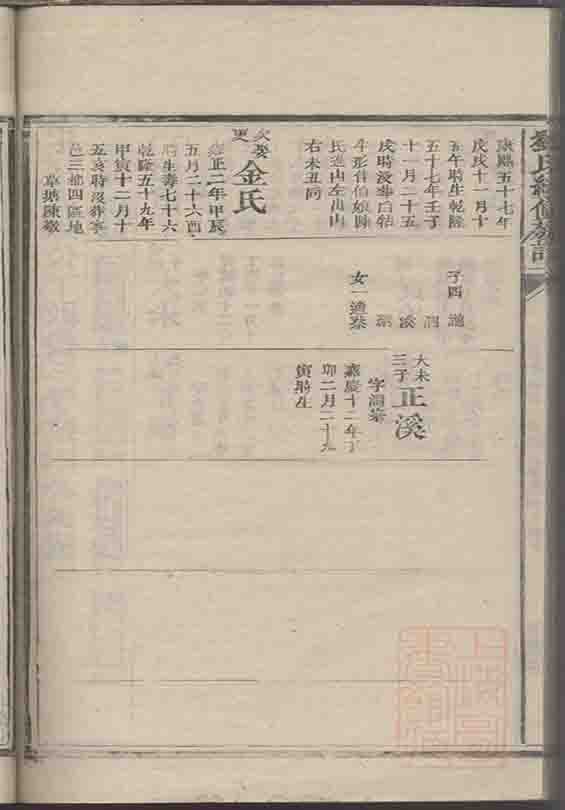 劉氏續修族譜
康熙五十七年
戊戌十一月十
五午時生乾隆
五十七年壬子
十一月二十五
戌時沒葬
右未丑向
次娶
金氏
雍正二年甲辰
五月二十六酉
時生壽七十六
乾隆五十九年
甲寅十二月十
五亥時沒葬寧
邑三都四區地
草塘陳墩
子四
女一適蔡
大未
三子
正溪
字澗蓁
嘉慶十二年丁
卯二月二十九
寅時生
上海圖書館藏